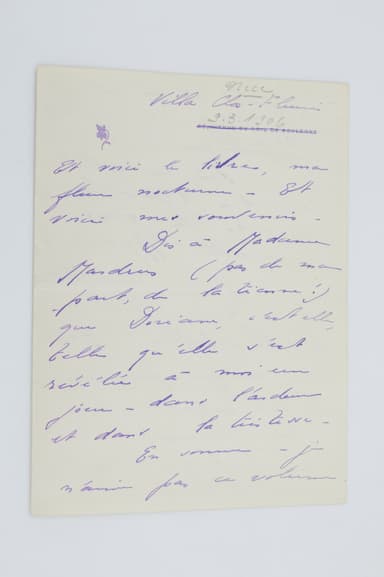 Nice
Villa Clos-Fleuri
9.3.1906
Et voici le livre, ma
fleur nocturne - Et
voici mes souvenirs -
Dis à Madame
Mardrus (pas de ma
part, de la tienne!)
que Doriane, c'est elle,
telle qu'elle s'est
révélée à moi un
jour - dans l'ardeur
et dans la tristesse -
En somme - je
n'aime pas ce volume